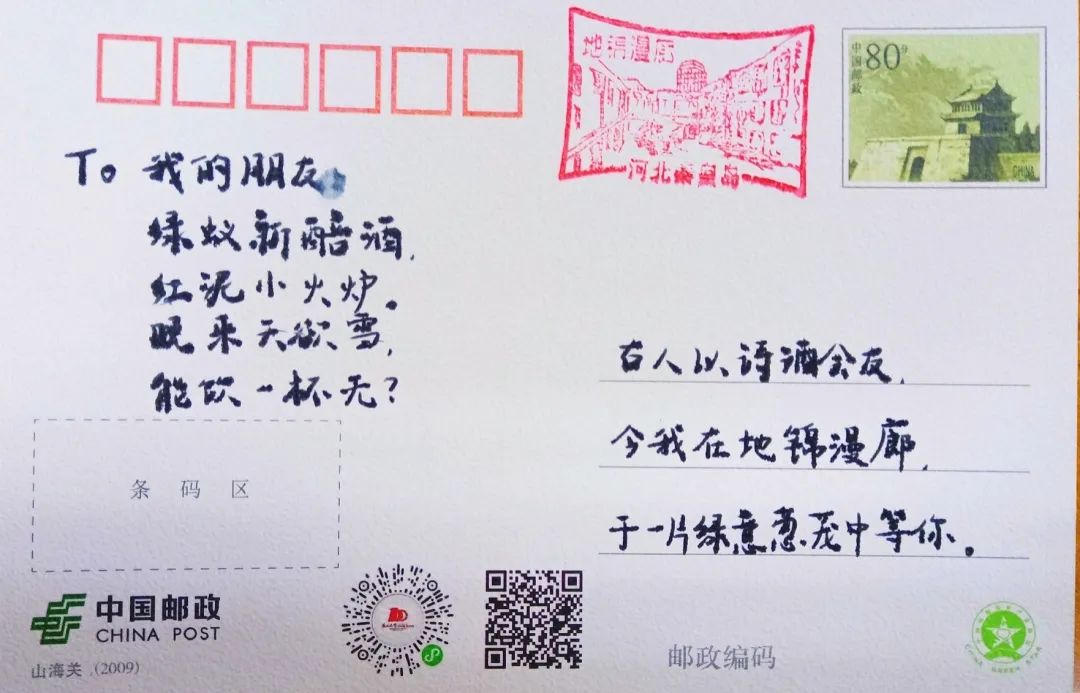 地锦漫廊
河北秦皇岛
中国邮政
80分
CHINA
To 我的朋友:
绿蚁新醅酒,
红泥小火炉。
晚来天欲雪,
能饮一杯无?
古人以诗酒会友,
今我在地锦漫廊,
于一片绿意葱茏中等你。
条码区
中国邮政
CHINA POST
山海关.(2009)
邮政编码